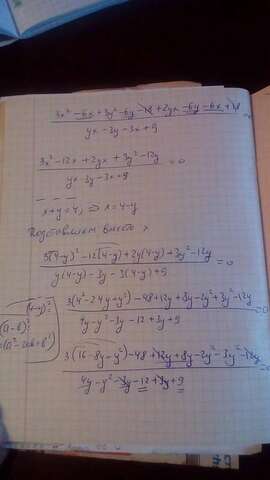 3x² - 6x + 3y² - 6y - 18 + 2yx - 6y - 6x + 18 / yx - 3y - 3x + 9 = 0
3x² - 12x + 2yx + 3y² - 12y / yx - 3y - 3x + 9 = 0
x + y = 4, ⇒ x = 4 - y
Подставляем вместо x
3(4-y)² - 12(4-y) + 2y(4-y) + 3y² - 12y / y(4-y) - 3y - 3(4-y) + 9 = 0
3(4² - 24y + y²) - 48 + 12y + 8y - 2y² + 3y² - 12y / 4y - y² - 3y - 12 + 3y + 9
(4-y)²=
(a-b)²
=(a²-2ab+b²)
3(16 - 8y - y²) - 48 + 12y + 8y - 2y² - 3y² - 12y / 4y - y² - 3y - 12 + 3y + 9 =0